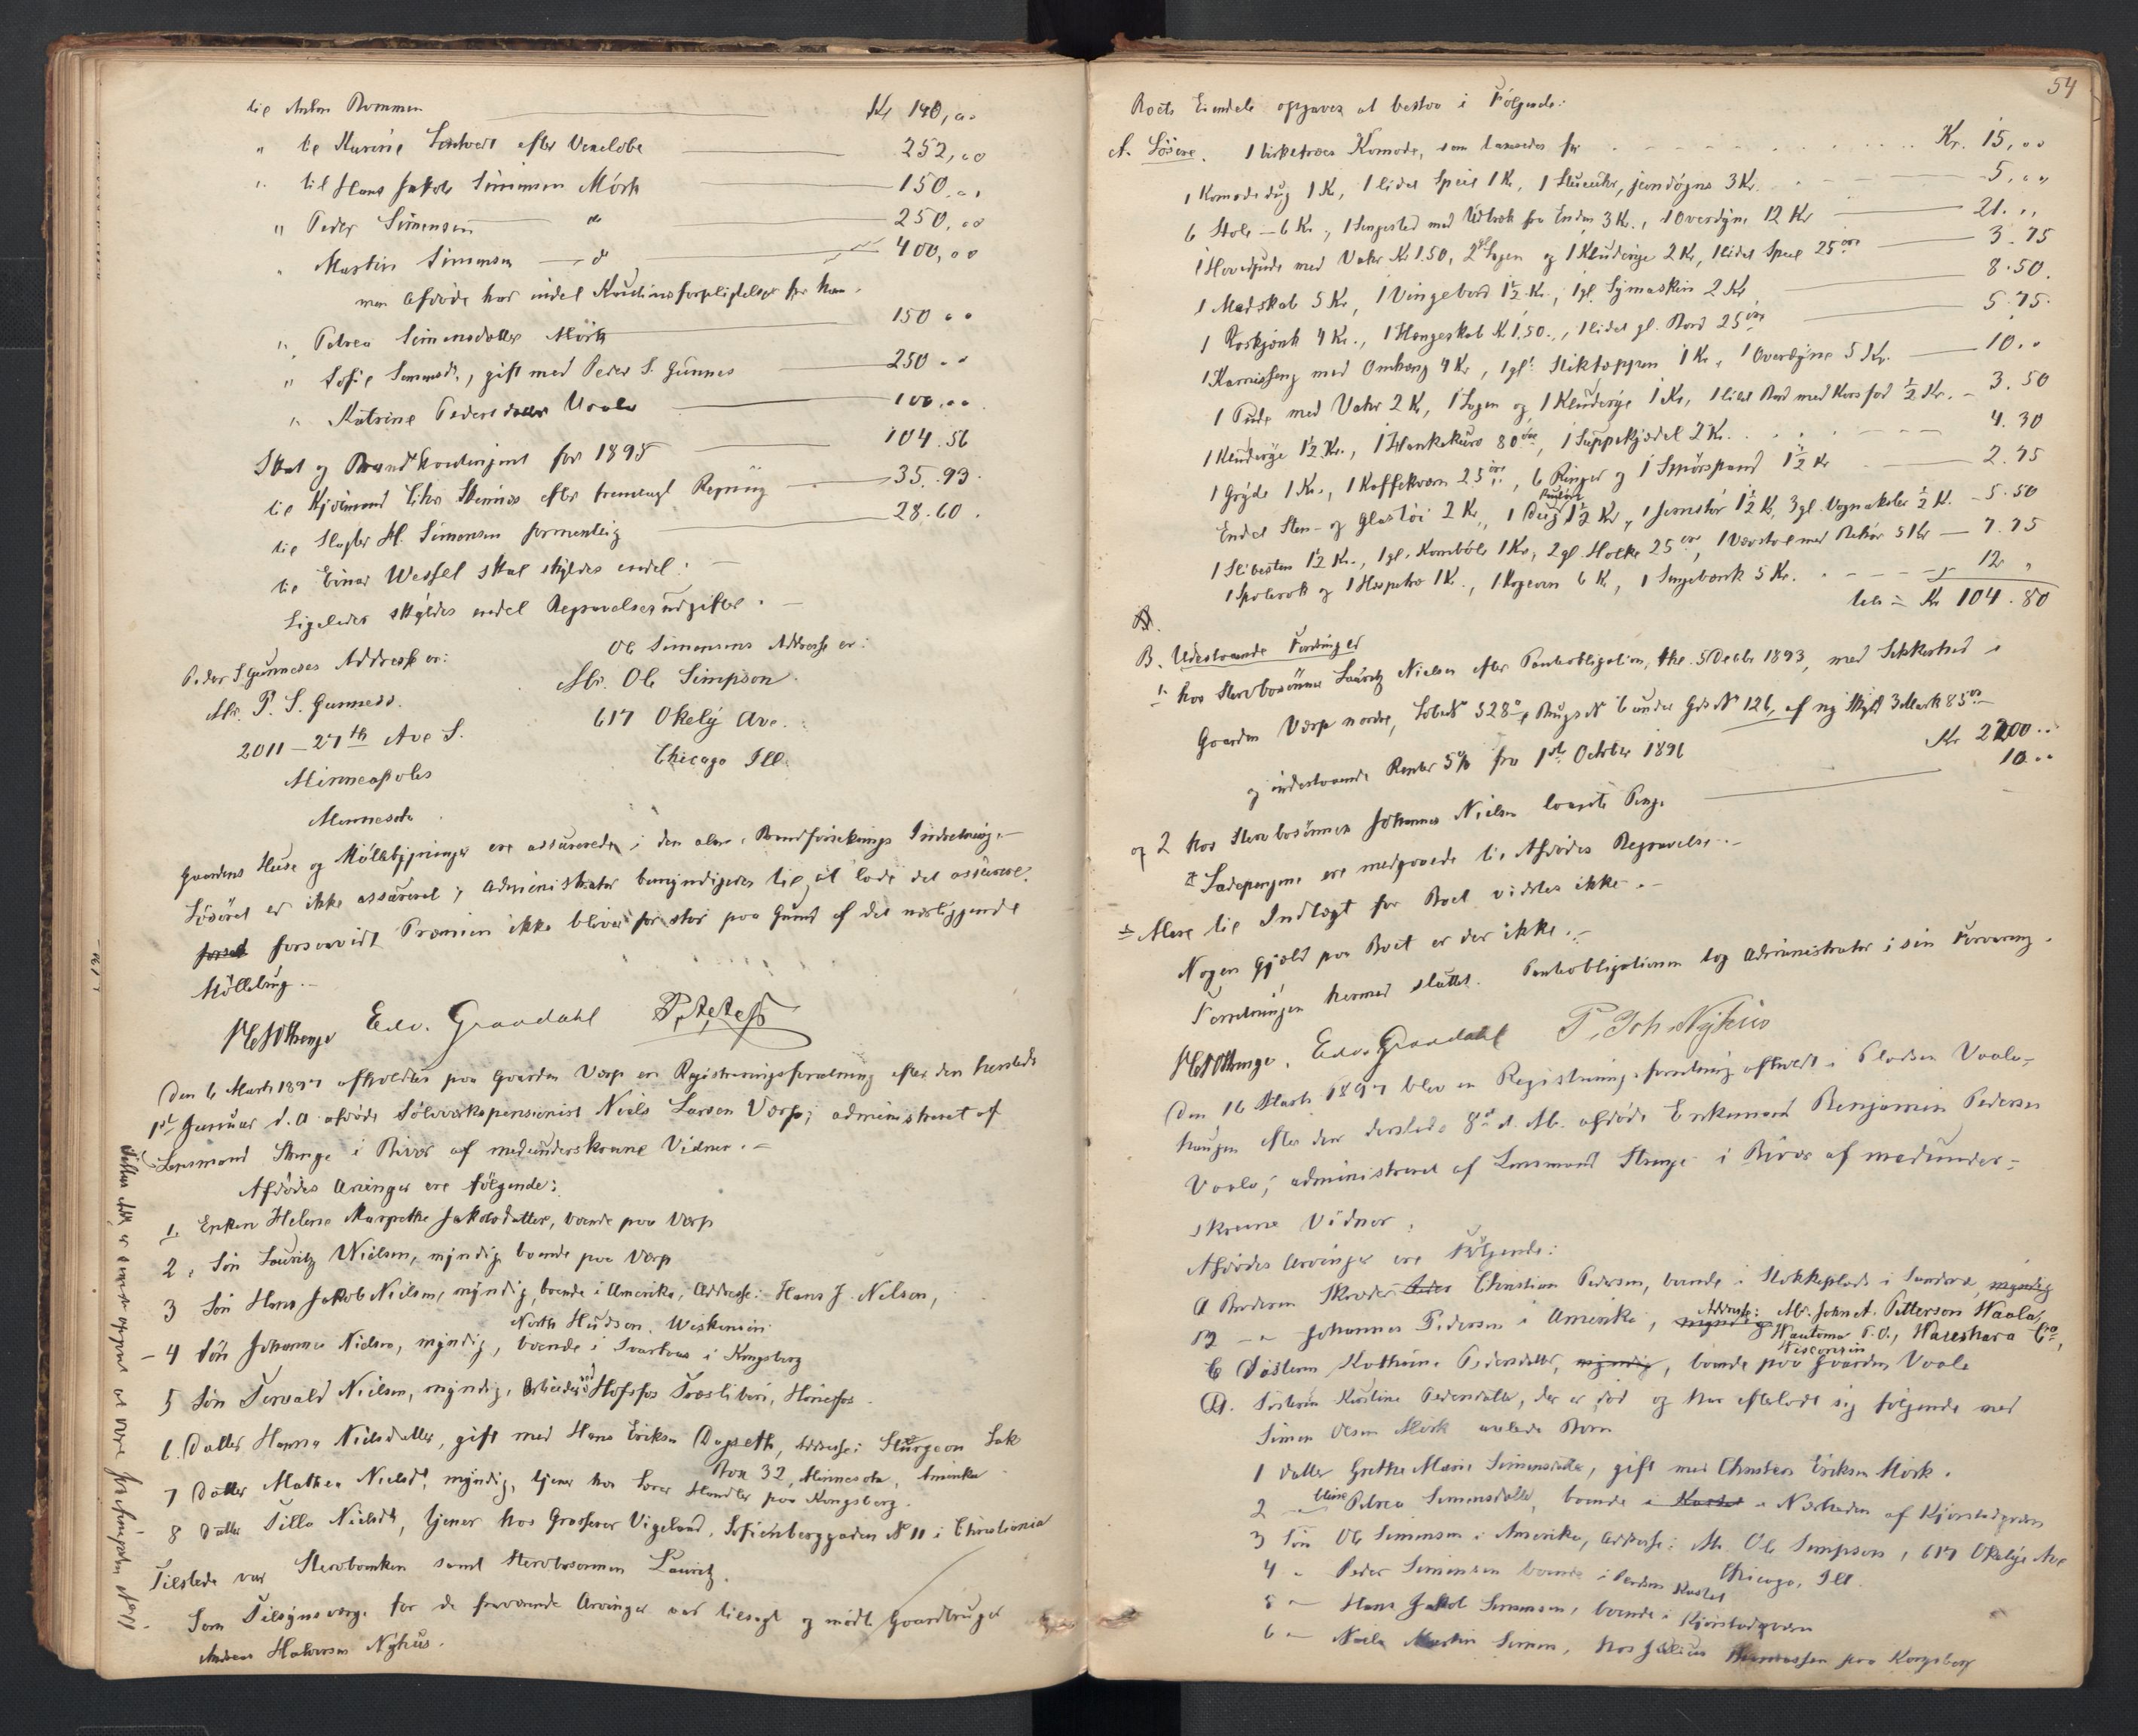 til Anton Bommen Kr 140,00
" til Karine efter 252,00
" til Hans Jakob Simensen Mörk 150,00
" Peder Simensen do 250,00
" Martin Simensen do 400,00
men afdöde har endel Kautionsforpligtelser for ham.
" Petrea Simensdatter Mörk 150 00
" Sofie Simensd., gift med Peder S. Gunnes 250 00
" Katrine Pedersdatter Vaala 100.00
Skat og Brandkontingent for 1895 104.56
til Kjöbmand efter fremlagt Regning 35.93.
til Slagter H. Simensen formentlig 28.60.
til Einar Wessel skal skyldes endel. —
Ligeledes skyldes endel Begravelsesudgifter. —
Peder S Gunneses Adresse er:
Mr. P. S. Gunness.
2011 – 27th Ave S.
Minneapolis
Minnesota.
Ole Simensens Adresse er:
Mr. Ole Simpson.
617 Okely Ave.
Chicago Ill.
Gaardens Huse og Möllebygninger ere assurerede i den alm. Brandforsikrings Indretning. —
Lösöret er ikke assureret; administrator bemyndigedes til at lade det assurere,
forsaavidt Præmien ikke bliver for stor paa Grund af det nærliggende
Möllebrug. —
Edv. Graadahl
Den 6 Marts 1897 afholdtes paa Gaarden Værp en Registreringsforretning efter den hersteds
1ste Januar d. A. afdöde Sölvværkspensionist Niels Larsen Værp; administreret af
Lensmand Strenge i Nærvær af medunderskrevne Vidner. —
Afdödes Arvinger ere følgende:
1. Enken Helene Margrethe Jakobsdatter, boende paa Værp
2. Sön Lauritz Nielsen, myndig boende paa Værp
3 Sön Hans Jakob Nielsen, myndig, boende i Amerika, Adresse: Hans J. Nelson,
North Hudson, Wiskonsin.
– 4 Sön Johannes Nielsen, myndig, boende i i Kongsberg
5 Sön Torvald Nielsen, myndig, Arbeider ved Hofsfos Træsliberi, Hönefos.
6. Datter Hanna Nielsdatter, gift med Hans Eriksen Dagseth, Adresse: Sturgeon Lak
Box 32, Minnesota, Amerika
7 Datter Mathea Nielsdt, myndig, tjener hos Handler paa Kongsberg.
8 Datter Tilla Nielsdt, tjener hos Grosserer Vigeland, Sofienberggaden No 11 i Christiania
Tilstede var Stervboenken samt Stervbosönnen Lauritz.
Som Tilsynsværge for de fraværende Arvinger var tilsagt og mödte Gaardbruger
Andreas Halvorsen Nyhus.
54
Boets Eiendele opgaves at bestaa i Følgende:
A. Lösöre. 1 birketræes Komode, som taxeredes for Kr. 15,00
1 Komodedug 1 Kr, 1 lidet Speil 1 Kr, 1 Stueuhr, jerndögns 3 Kr. 5,00
6 Stole – 6 Kr., 1 Sengested med Udtræk fra Enden 3 Kr., 1 Overdyne 12 Kr 21.00
1 Hovedpude med Vahr Kr 1.50, 2 gl Lagen og 1 Kluderye 2 Kr, 1 lidet Speil 25 öre 3.75
1 Madskab 5 Kr, 1 Vingebord 1½ Kr., 1 gl. Symaskin 2 Kr 8.50.
1 4 Kr., 1 Hengeskab Kr 1.50., 1 lidet gl. Bord 25 öre 5.75.
1 Karnisseng med Omheng 4 Kr, 1 gl. Stiktæppen 1 Kr, 1 Overdyne 5 Kr. 10.00
1 Pude med Vahr 2 Kr, 1 Lagen og 1 Kluderye 1 Kr, 1 lidet Bord med Korsfod ½ Kr. – 3.50
1 Kluderye 1½ Kr., 1 Hankekurv 80 öre, 1 Suppekjedel 2 Kr. 4.30
1 Gryde 1 Kr., 1 Kaffekværn 25 öre, 6 Ringer og 1 Smörspand 1½ Kr 2.75
Endel Sten- og Glastöi 2 Kr, 1 Dug 1½ Kr, 1 Jernstör 1½ Kr, 3 gl. Vognaksler ½ Kr. – 5.50
1 Slibesten 1½ Kr., 1 gl. 1 Kr, 2 gl. Holke 25 öre, 1 Vævstol med Rekör 5 Kr — 7.75
1 Spolerok og 1 Hespetræ 1 Kr., 1 Kogeovn 6 Kr, 1 Sengebænk 5 Kr. 12 "
tils = Kr 104.80
B. Udestaaende Fordringer
1. hos Stervbosönnen Lauritz Nielsen efter Panteobligation, thl. 5 Decbr 1893, med Sikkerhed i
Gaarden Værp nordre, Löbe No 328 a, Brugs No 6 under Gds No 126, af ny Skyld 3 Mark 85 öre
og indestaaende Renter 5% fra 1ste October 1896 Kr 2200..
og 2 hos Stervbosönnen Johannes Nielsen laante Penge 10..
Ladepengene ere medgaaede til Afdödes Begravelse. –
Mere til Indtægt for Boet vidstes ikke. –
Nogen Gjæld paa Boet er der ikke. –
Forretningen hermed sluttet. Panteobligationen tog administrator i sin Forvaring.
Edv. Graadahl P. Joh. Nyhus
Den 16 Marts 1897 blev en Registreringsforretning afholdt i Pladsen Vaala-
haugen efter den dersteds 8de d. M. afdöde Enkemand Benjamin Pedersen
Vaala; administreret af Lensmand Strenge i Nærvær af medunder-
skrevne Vidner.
Afdödes Arvinger ere Følgende:
A Broderen Skræder Christian Pedersen, boende i Stokkeplads i Sandsvær, myndig
B – " – Johannes Pedersen i Amerika, myndig Adresse: Mr. John A. Petterson Waala,
Wautoma P. O., Waushara Co,
Wisconsin
C Søsteren Kathrine Pedersdatter, myndig, boende paa Gaarden Vaala
D. Søsteren Kirstine Pedersdatter, der er död og har efterladt sig følgende med
Simen Olsen Mörk avlede Børn
1 Datter Grethe Marie Simensdatter, gift med Christen Eriksen Mörk.
2 – " – Petrea Simensdatter, boende i Nærheden af Kjørstadgværn
3 Sön Ole Simensen i Amerika, Adresse: Mr. Ole Simpson, 617 Okelye Ave
Chicago, Ill.
4 " Peder Simensen boende i
5 – Hans Jakob Simensen, boende i Kjørstadgværn
6 – Niels Martin Simen, hos Julius paa Kongsberg